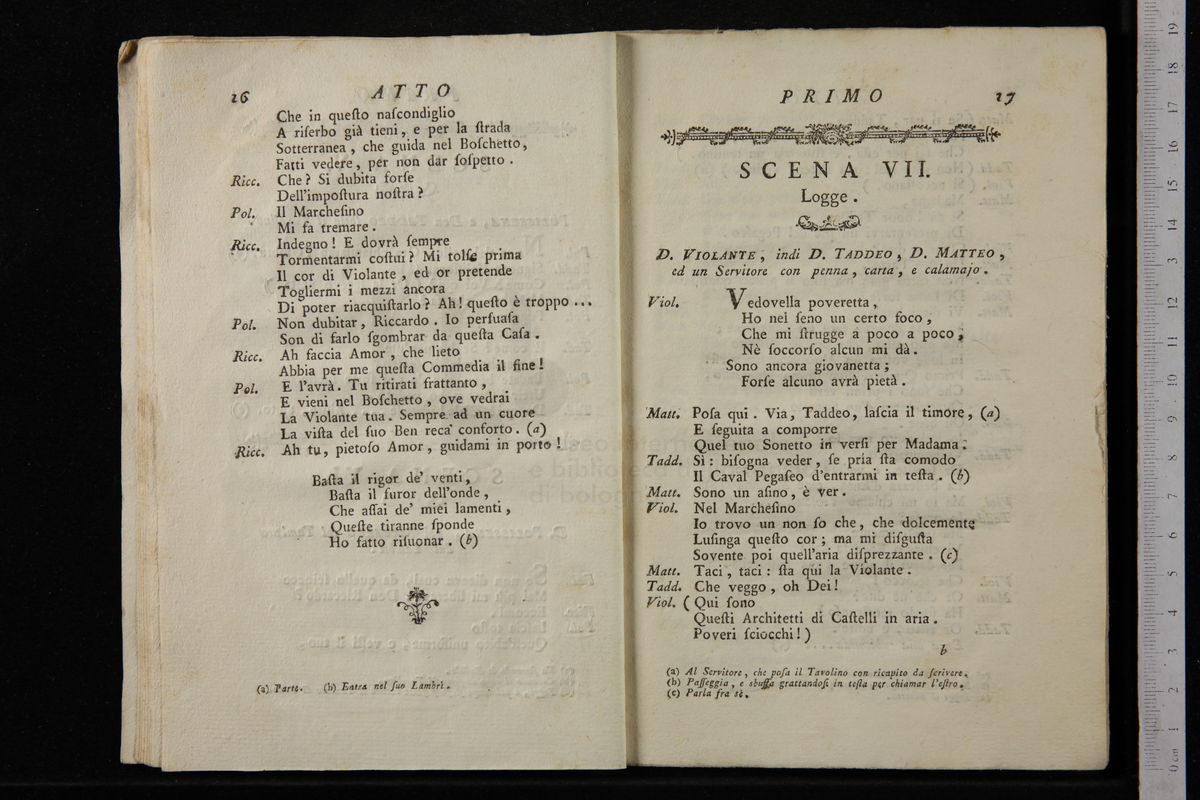 16 ATTO
Che in queſto naſcondiglio
A riſerbo già tieni, e per la ſtrada
Sotterranea, che guida nel Boſchetto,
Fatti vedere, per non dar ſoſpetto.
Ricc. Che? Si dubita forſe
Dell'impoſtura noſtra?
Pol. Il Marcheſino
Mi fa tremare.
Ricc. Indegno! E dovrà ſempre
Tormentarmi coſtui? Mi tolſe prima
Il cor di Violante, ed or pretende
Togliermi i mezzi ancora
Di poter riacquiſtarlo? Ah! queſto è troppo ...
Pol. Non dubitar, Riccardo. Io perſuaſa
Son di farlo ſgombrar da queſta Caſa.
Ricc. Ah faccia Amor, che lieto
Abbia per me queſta Commedia il fine!
Pol. E l'avrà. Tu ritirati frattanto,
E vieni nel Boſchetto, ove vedrai
La Violante tua. Sempre ad un cuore
La viſta del ſuo Ben reca conforto. (a)
Ricc. Ah tu, pietoſo Amor, guidami in porto!
Baſta il rigor de' venti,
Baſta il furor dell'onde,
Che aſſai de' miei lamenti,
Queſte tiranne ſponde
Ho fatto riſuonar. (b)
(a) Parte. (b) Entra nel ſuo Lambrì.
PRIMO 17
SCENA VII.
Logge.
D. VIOLANTE, indi D. TADDEO, D. MATTEO,
ed un Servitore con penna, carta, e calamajo.
Viol. Vedovella poveretta,
Ho nel ſeno un certo foco,
Che mi ſtrugge a poco a poco;
Nè ſoccorſo alcun mi dà.
Sono ancora giovanetta;
Forſe alcuno avrà pietà.
Matt. Poſa qui. Via, Taddeo, laſcia il timore, (a)
E ſeguita a comporre
Quel tuo Sonetto in verſi per Madama.
Tadd. Sì: biſogna veder, ſe pria ſta comodo
Il Caval Pegaſeo d'entrarmi in teſta. (b)
Matt. Sono un aſino, è ver.
Viol. Nel Marcheſino
Io trovo un non ſo che, che dolcemente
Luſinga queſto cor; ma mi diſguſta
Sovente poi quell'aria diſprezzante. (c)
Matt. Taci, taci: ſta qui la Violante.
Tadd. Che veggo, oh Dei!
Viol. (Qui ſono
Queſti Architetti di Caſtelli in aria.
Poveri ſciocchi!)
b
(a) Al Servitore, che poſa il Tavolino con ricapito da ſcrivere.
(b) Paſſeggia, e sbuffa grattandoſi in teſta per chiamar l'eſtro.
(c) Parla fra sè.